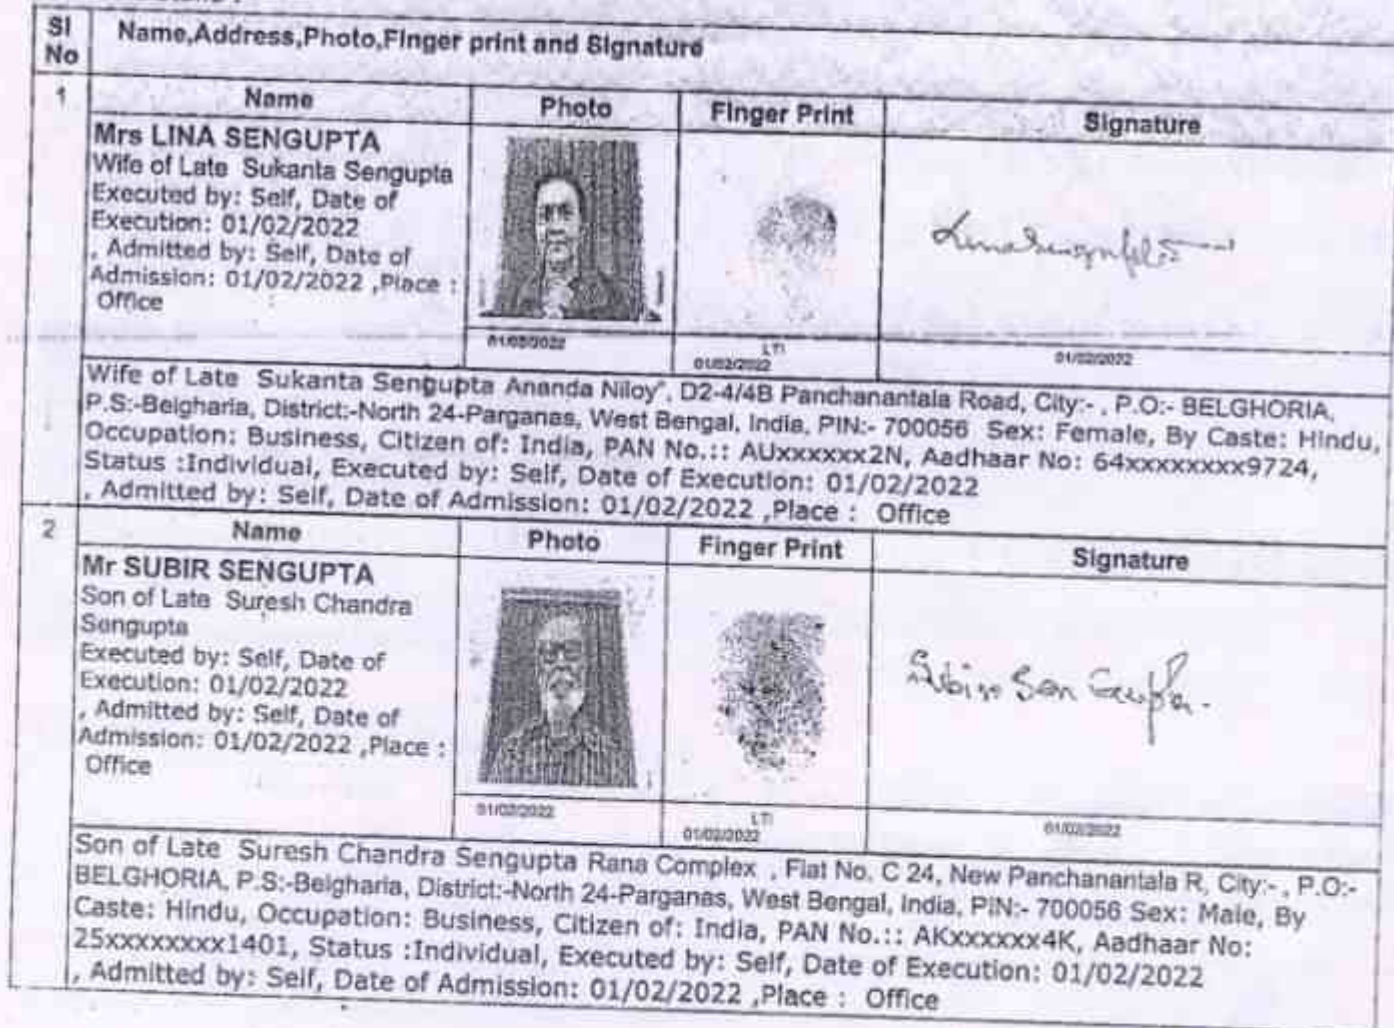 Sl No
Name,Address,Photo,Finger print and Signature
1
Name
Photo
Finger Print
Signature
Mrs LINA SENGUPTA
Wife of Late Sukanta Sengupta
Executed by: Self, Date of
Execution: 01/02/2022
, Admitted by: Self, Date of
Admission: 01/02/2022 ,Place :
Office
01/02/2022
LTI
01/02/2022
01/02/2022
Wife of Late Sukanta Sengupta Ananda Niloy", D2-4/4B Panchanantala Road, City:- , P.O:- BELGHORIA,
P.S:-Belgharia, District:-North 24-Parganas, West Bengal, India, PIN:- 700056 Sex: Female, By Caste: Hindu,
Occupation: Business, Citizen of: India, PAN No.:: AUxxxxxx2N, Aadhaar No: 64xxxxxxxx9724,
Status :Individual, Executed by: Self, Date of Execution: 01/02/2022
, Admitted by: Self, Date of Admission: 01/02/2022 ,Place : Office
2
Name
Photo
Finger Print
Signature
Mr SUBIR SENGUPTA
Son of Late Suresh Chandra
Sengupta
Executed by: Self, Date of
Execution: 01/02/2022
, Admitted by: Self, Date of
Admission: 01/02/2022 ,Place :
Office
Subir Sen Gupta.
01/02/2022
LTI
01/02/2022
01/02/2022
Son of Late Suresh Chandra Sengupta Rana Complex , Flat No. C 24, New Panchanantala R, City:- , P.O:-
BELGHORIA, P.S:-Belgharia, District:-North 24-Parganas, West Bengal, India, PIN:- 700056 Sex: Male, By
Caste: Hindu, Occupation: Business, Citizen of: India, PAN No.:: AKxxxxxx4K, Aadhaar No:
25xxxxxxxx1401, Status :Individual, Executed by: Self, Date of Execution: 01/02/2022
, Admitted by: Self, Date of Admission: 01/02/2022 ,Place : Office